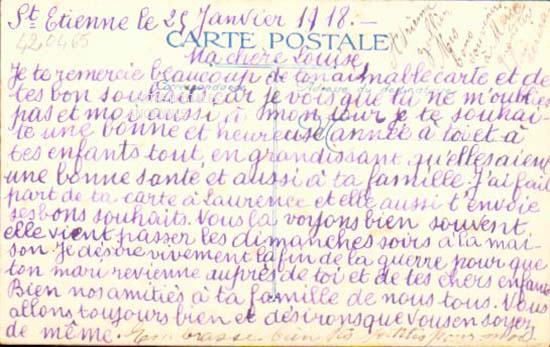 St Etienne le 25 Janvier 1918.—
420465
CARTE POSTALE
Ma chère Louise
Je te remercie beaucoup de ton aimable carte et de
tes bon souhaits car je vois que tu ne m'oublies
pas et moi aussi, à mon tour je te souhai-
te une bonne et heureuse année à toi et à
tes enfants tout en grandissant qu'elles aient
une bonne santé et aussi à ta famille. J'ai fait
part de ta carte à Laurence et elle aussi t'envoie
ses bons souhaits. Vous la voyons bien souvent,
elle vient passer les dimanches soirs à la mai-
son. Je désire vivement la fin de la guerre pour que
ton mari revienne auprès de toi et de tes chers enfants
Bien nos amitiés à ta famille de nous tous. Nous
allons toujours bien et désirons que vous en soyez
de même. Embrasse bien tes petites pour moi.
bons
souvenirs
Marie